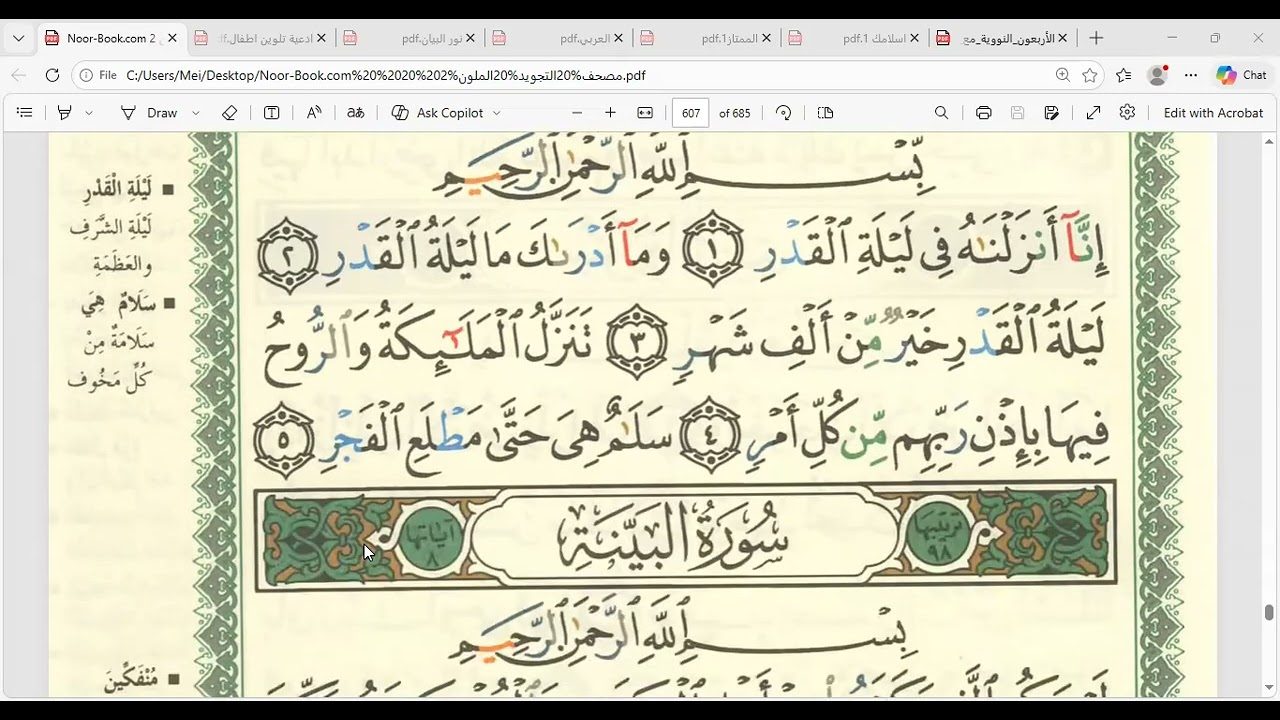 Noor-Book.com 2
ادعية تلوين اطفال
نور البيان.pdf
العربي.pdf
الممتاز1.pdf
اسلامك 1.pdf
الأربعون_النووية_مع
File C:/Users/Mei/Desktop/Noor-Book.com%20%2020%202%مصحف%20التجويد%20الملون.pdf
Chat
Draw
Ask Copilot
607 of 685
Edit with Acrobat
بِّسْمِ ٱللَّهِ ٱلرَّحْمَٰنِ ٱلرَّحِيمِ
إِنَّآ أَنزَلْنَٰهُ فِى لَيْلَةِ ٱلْقَدْرِ ١ وَمَآ أَدْرَىٰكَ مَا لَيْلَةُ ٱلْقَدْرِ ٢
لَيْلَةُ ٱلْقَدْرِ خَيْرٌ مِّنْ أَلْفِ شَهْرٍ ٣ تَنَزَّلُ ٱلْمَلَٰٓئِكَةُ وَٱلرُّوحُ
فِيهَا بِإِذْنِ رَبِّهِم مِّن كُلِّ أَمْرٍ ٤ سَلَٰمٌ هِىَ حَتَّىٰ مَطْلَعِ ٱلْفَجْرِ ٥
لَيْلَةِ الْقَدْرِ
لَيْلَةِ الشَّرَفِ
والعَظَمَةِ
سَلَامٌ هِيَ
سَلَامَةٌ مِنْ
كُلِّ مَخُوف
ترتيبها ٩٨
سُورَةُ البَيِّنَةِ
آياتها ٨
بِسْمِ ٱللَّهِ ٱلرَّحْمَٰنِ ٱلرَّحِيمِ
مُنْفَكِّينَ